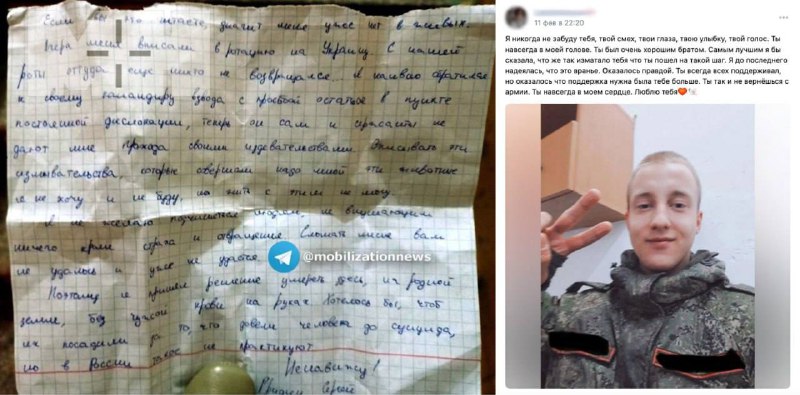 Если вы это читаете, значит меня уже нет в живых.
Вчера меня вписали в ротацию на Украину. С нашей
роты оттуда еще никто не возвращался. Я наивно обратился
к своему командиру взвода с просьбой остаться в пункте
постоянной дислокации, теперь он сам и сержанты не
дают мне прохода своими издевательствами. Описывать эти
издевательства, которые совершали надо мной эти животные
я не хочу и не буду, но жить с этим не могу.
Я не желаю подчиняться людям, не внушающим
ничего кроме страха и отвращения. Сломать меня вам
не удалось и уже не удастся.
Поэтому я принял решение умереть здесь, на родной
земле, без чужой крови на руках. Хотелось бы, чтоб
их посадили за то, что довели человека до суицида,
но в России такое не практикуют.
Ненавижу!
Сергей
@mobilizationnews
11 фев в 22:20
Я никогда не забуду тебя, твой смех, твои глаза, твою улыбку, твой голос. Ты
навсегда в моей голове. Ты был очень хорошим братом. Самым лучшим я бы
сказала, что же так измотало тебя что ты пошел на такой шаг. Я до последнего
надеялась, что это вранье. Оказалось правдой. Ты всегда всех поддерживал,
но оказалось что поддержка нужна была тебе больше. Ты так и не вернёшься с
армии. Ты навсегда в моем сердце. Люблю тебя